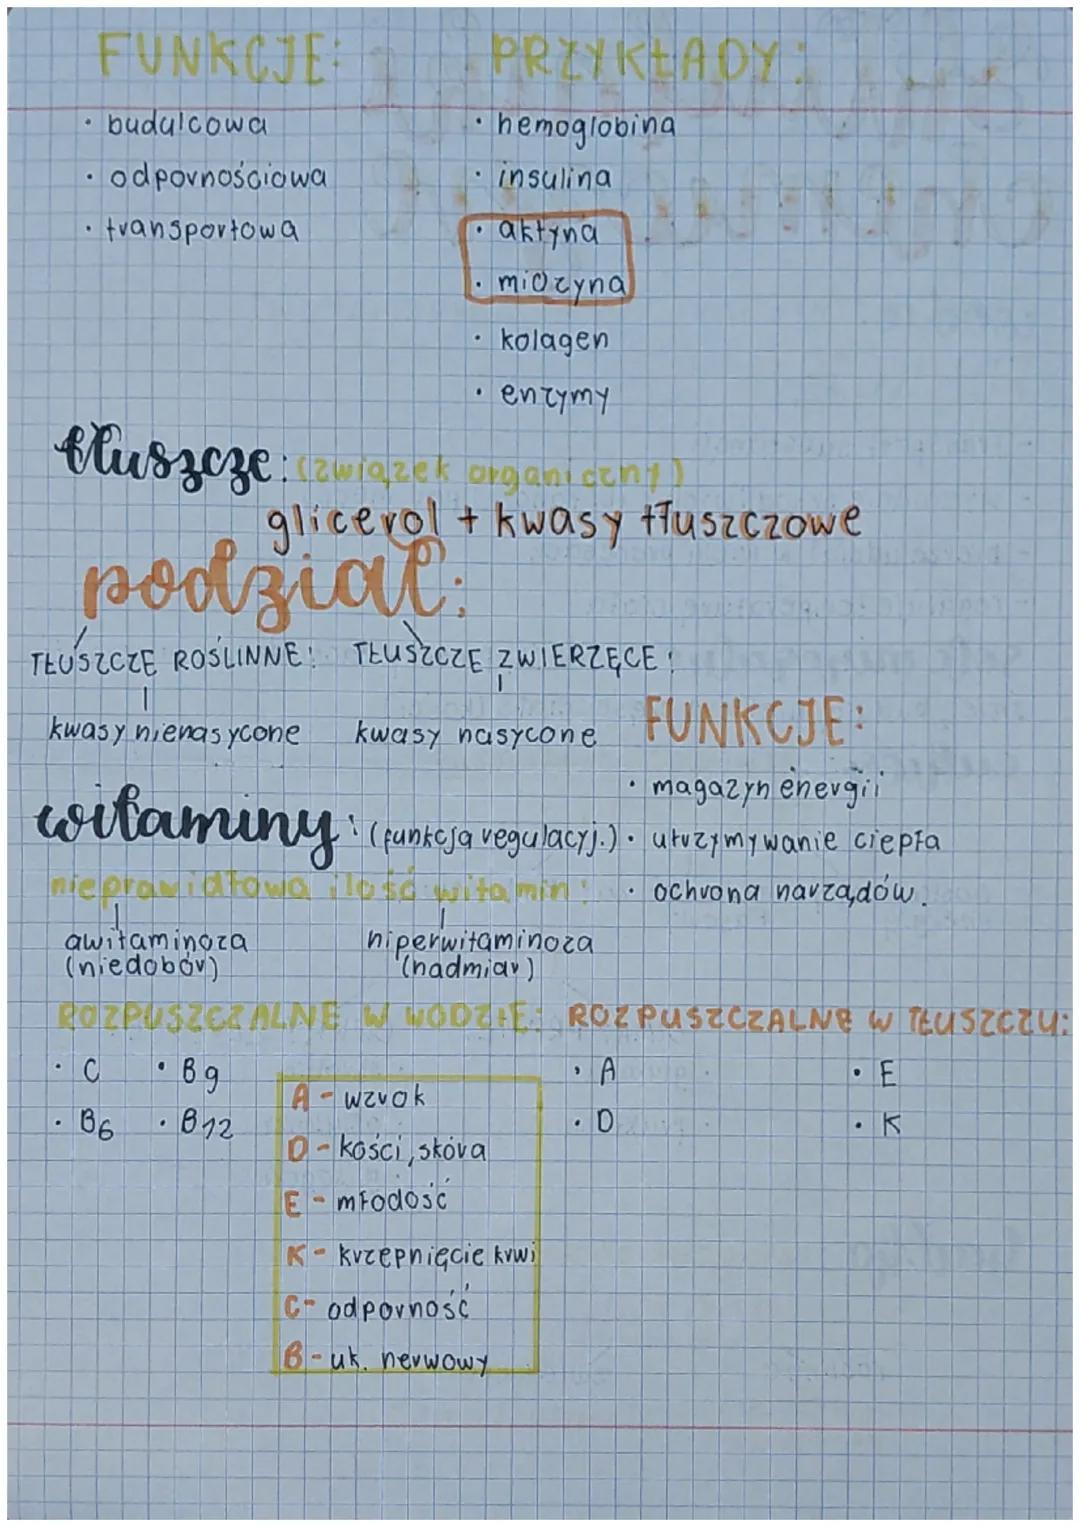 FUNKCJE:
• budulcowa
• odpornościowa
• transportowa
PRZYKŁADY:
• hemoglobina
• insulina
• aktyna
• miozyna
• kolagen
• enzymy
tłuszcze: (związek organiczny)
glicerol + kwasy tłuszczowe
podział:
TŁUSZCZE ROŚLINNE:
kwasy nienasycone
TŁUSZCZE ZWIERZĘCE:
kwasy nasycone
FUNKCJE:
• magazyn energii
• utrzymywanie ciepła
• ochrona narządów.
witaminy: (funkcja regulacyj.)
nieprawidłowa ilość witamin:
awitaminoza
(niedobór)
hiperwitaminoza
(nadmiar)
ROZPUSZCZALNE W WODZIE:
• C • B9
• B6 • B12
ROZPUSZCZALNE W TŁUSZCZU:
• A • E
• D • K
A - wzrok
D - kości, skóra
E - młodość
K - krzepnięcie krwi
C - odporność
B - uk. nerwowy